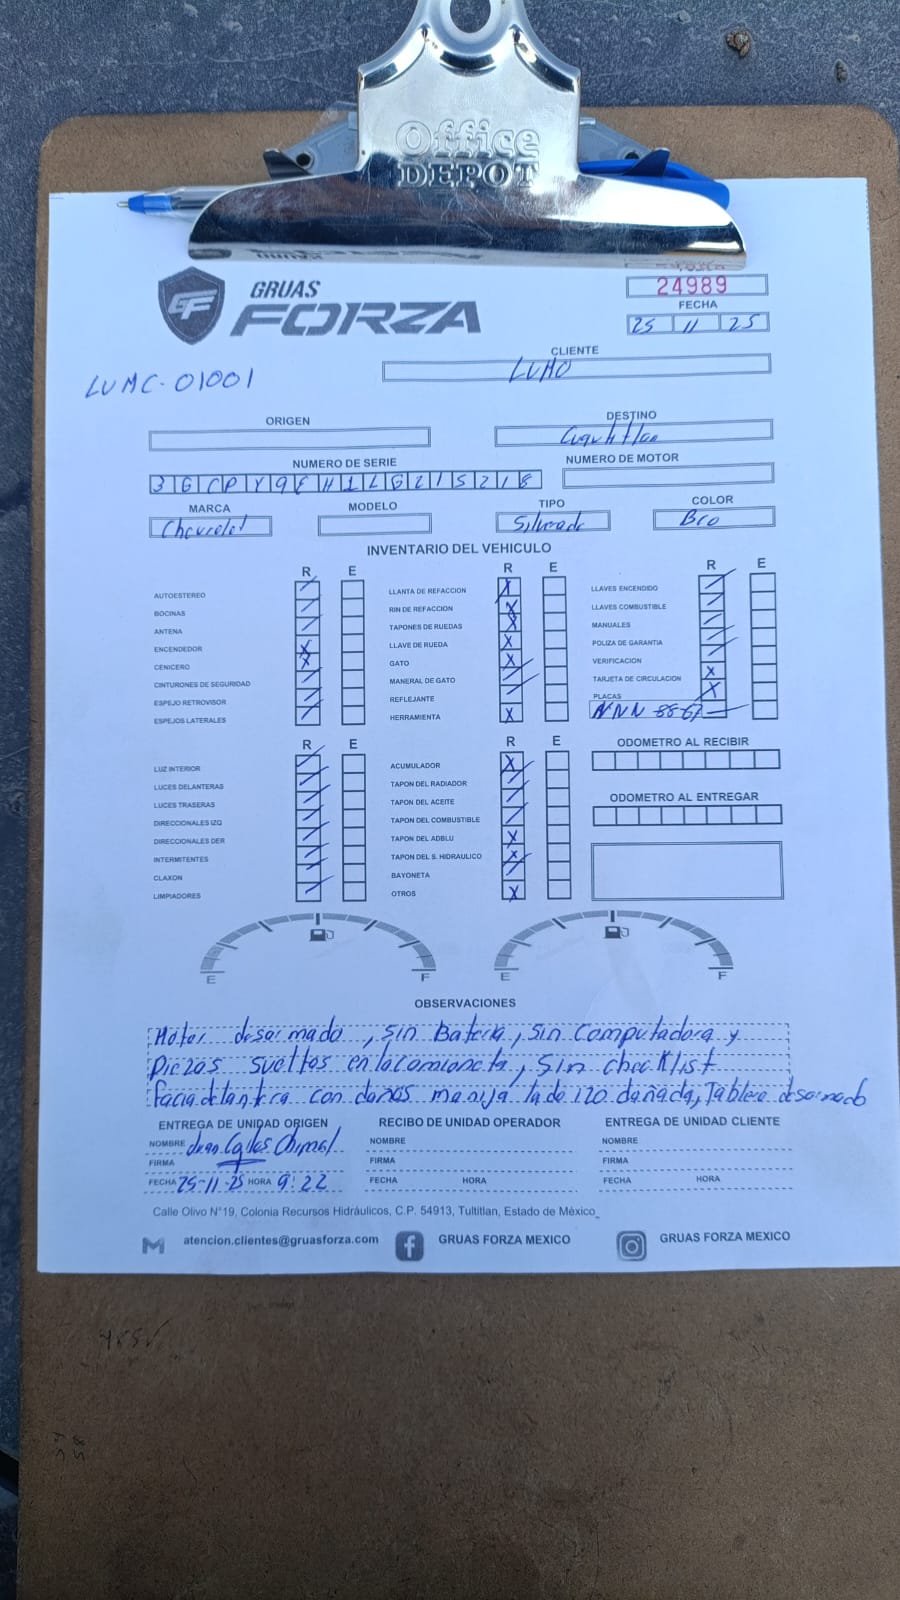 Office
DEPOT
GRUAS
FORZA
GF
24989
FECHA
25 11 25
CLIENTE
LUMO
LUMC-01001
ORIGEN
DESTINO
Cuauhtitlan
NUMERO DE SERIE
NUMERO DE MOTOR
3GCPY9EH1LG215218
MARCA
MODELO
TIPO
COLOR
Chevrolet
Silverado
Bco
INVENTARIO DEL VEHICULO
R E
AUTOESTEREO
BOCINAS
ANTENA
ENCENDEDOR X
CENICERO X
CINTURONES DE SEGURIDAD
ESPEJO RETROVISOR
ESPEJOS LATERALES
R E
LLANTA DE REFACCION X
RIN DE REFACCION X
TAPONES DE RUEDAS X
LLAVE DE RUEDA X
GATO X
MANERAL DE GATO
REFLEJANTE
HERRAMIENTA X
R E
LLAVES ENCENDIDO
LLAVES COMBUSTIBLE
MANUALES
POLIZA DE GARANTIA
VERIFICACION
TARJETA DE CIRCULACION X
PLACAS X
R E
LUZ INTERIOR
LUCES DELANTERAS
LUCES TRASERAS
DIRECCIONALES IZQ
DIRECCIONALES DER
INTERMITENTES
CLAXON
LIMPIADORES
R E
ACUMULADOR X
TAPON DEL RADIADOR
TAPON DEL ACEITE
TAPON DEL COMBUSTIBLE
TAPON DEL ADBLU X
TAPON DEL S. HIDRAULICO X
BAYONETA
OTROS X
ODOMETRO AL RECIBIR
ODOMETRO AL ENTREGAR
E F
E F
OBSERVACIONES
Motor desarmado, sin Bateria, sin computadora y
Piezas sueltas en la camioneta, sin checklist
facia delantera con daños manija lado izq dañada, Tablero desarmado
ENTREGA DE UNIDAD ORIGEN
NOMBRE Juan Carlos
FIRMA
FECHA 25-11-25 HORA 9:22
RECIBO DE UNIDAD OPERADOR
NOMBRE
FIRMA
FECHA HORA
ENTREGA DE UNIDAD CLIENTE
NOMBRE
FIRMA
FECHA HORA
Calle Olivo N°19, Colonia Recursos Hidráulicos, C.P. 54913, Tultitlan, Estado de México_
atencion.clientes@gruasforza.com
GRUAS FORZA MEXICO
GRUAS FORZA MEXICO